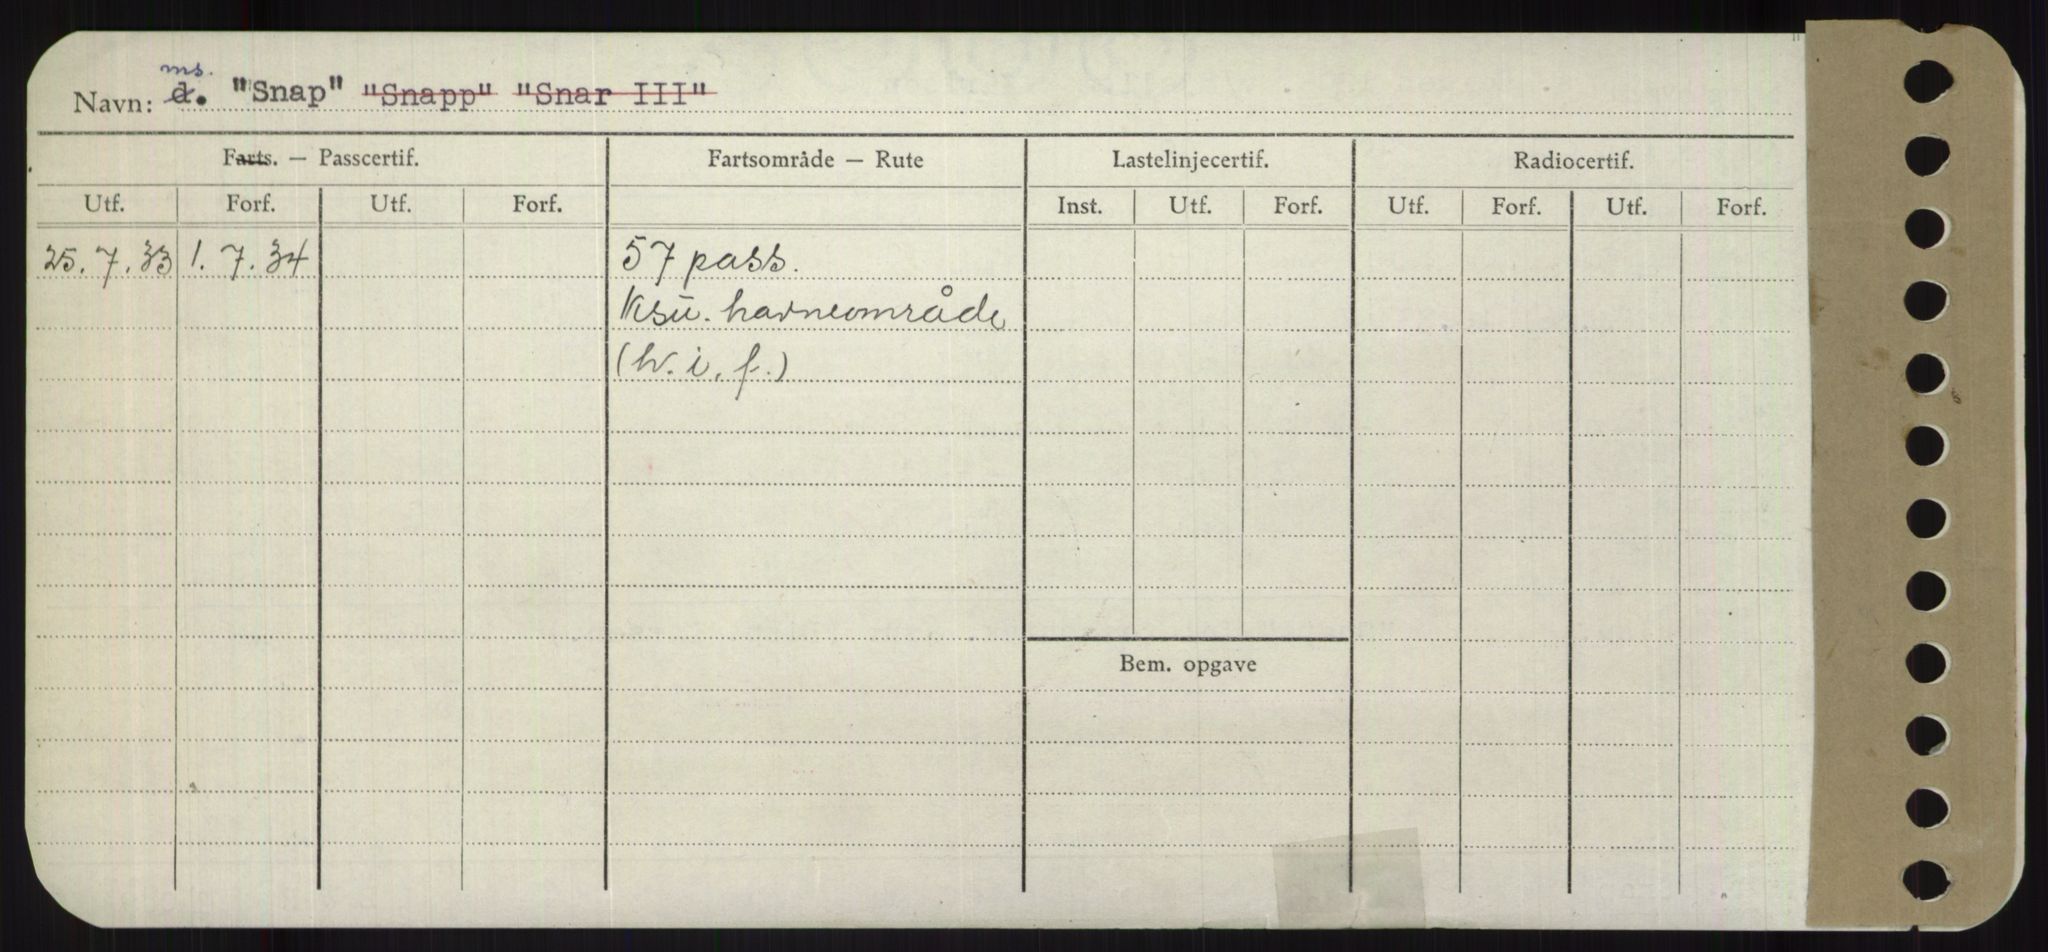 ms.
Navn: d. "Snap" "Snapp" "Snar III"
Farts. — Passcertif. Fartsområde — Rute Lastelinjecertif. Radiocertif.
Utf. Forf. Utf. Forf. Inst. Utf. Forf. Utf. Forf. Utf. Forf.
25.7.33 1.7.34 57 pass.
Ksu. havneområde
(h. i. f.)
Bem. opgave